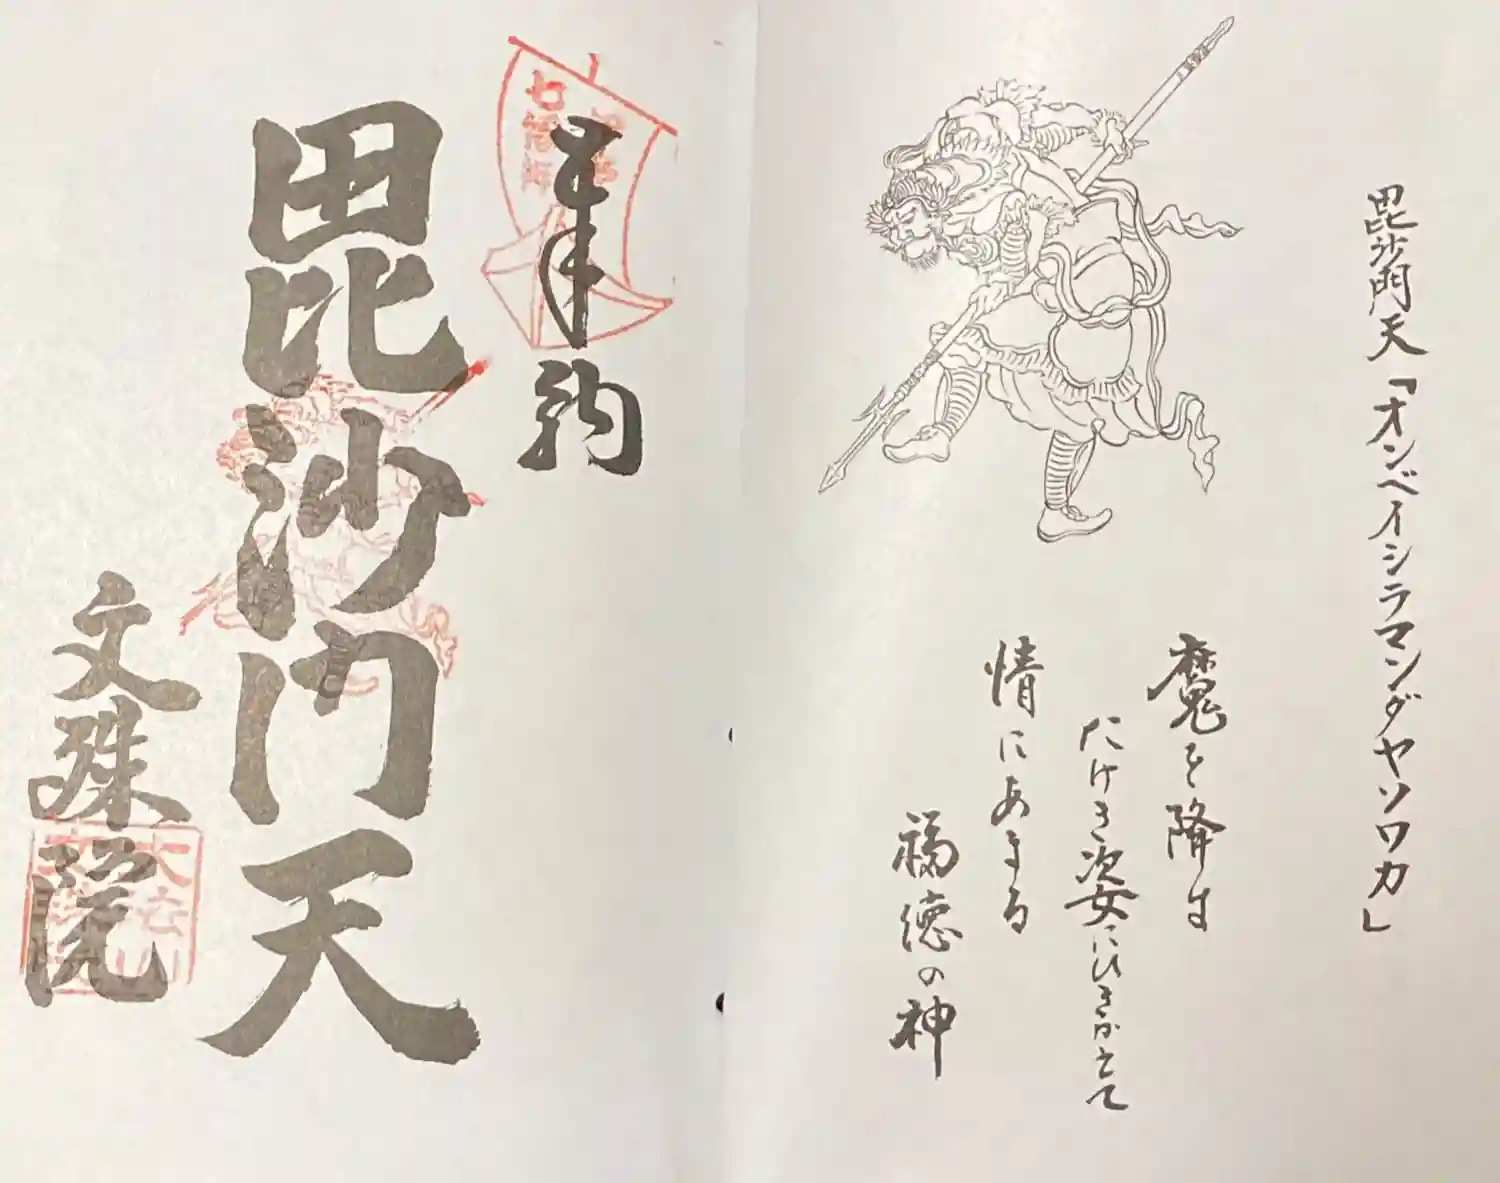 毘沙門天「オンベイシラマンダヤソワカ」
魔を降す
たけき姿にひきかえて
情にあまる
福徳の神
奉納
七福
毘沙門天
文殊院